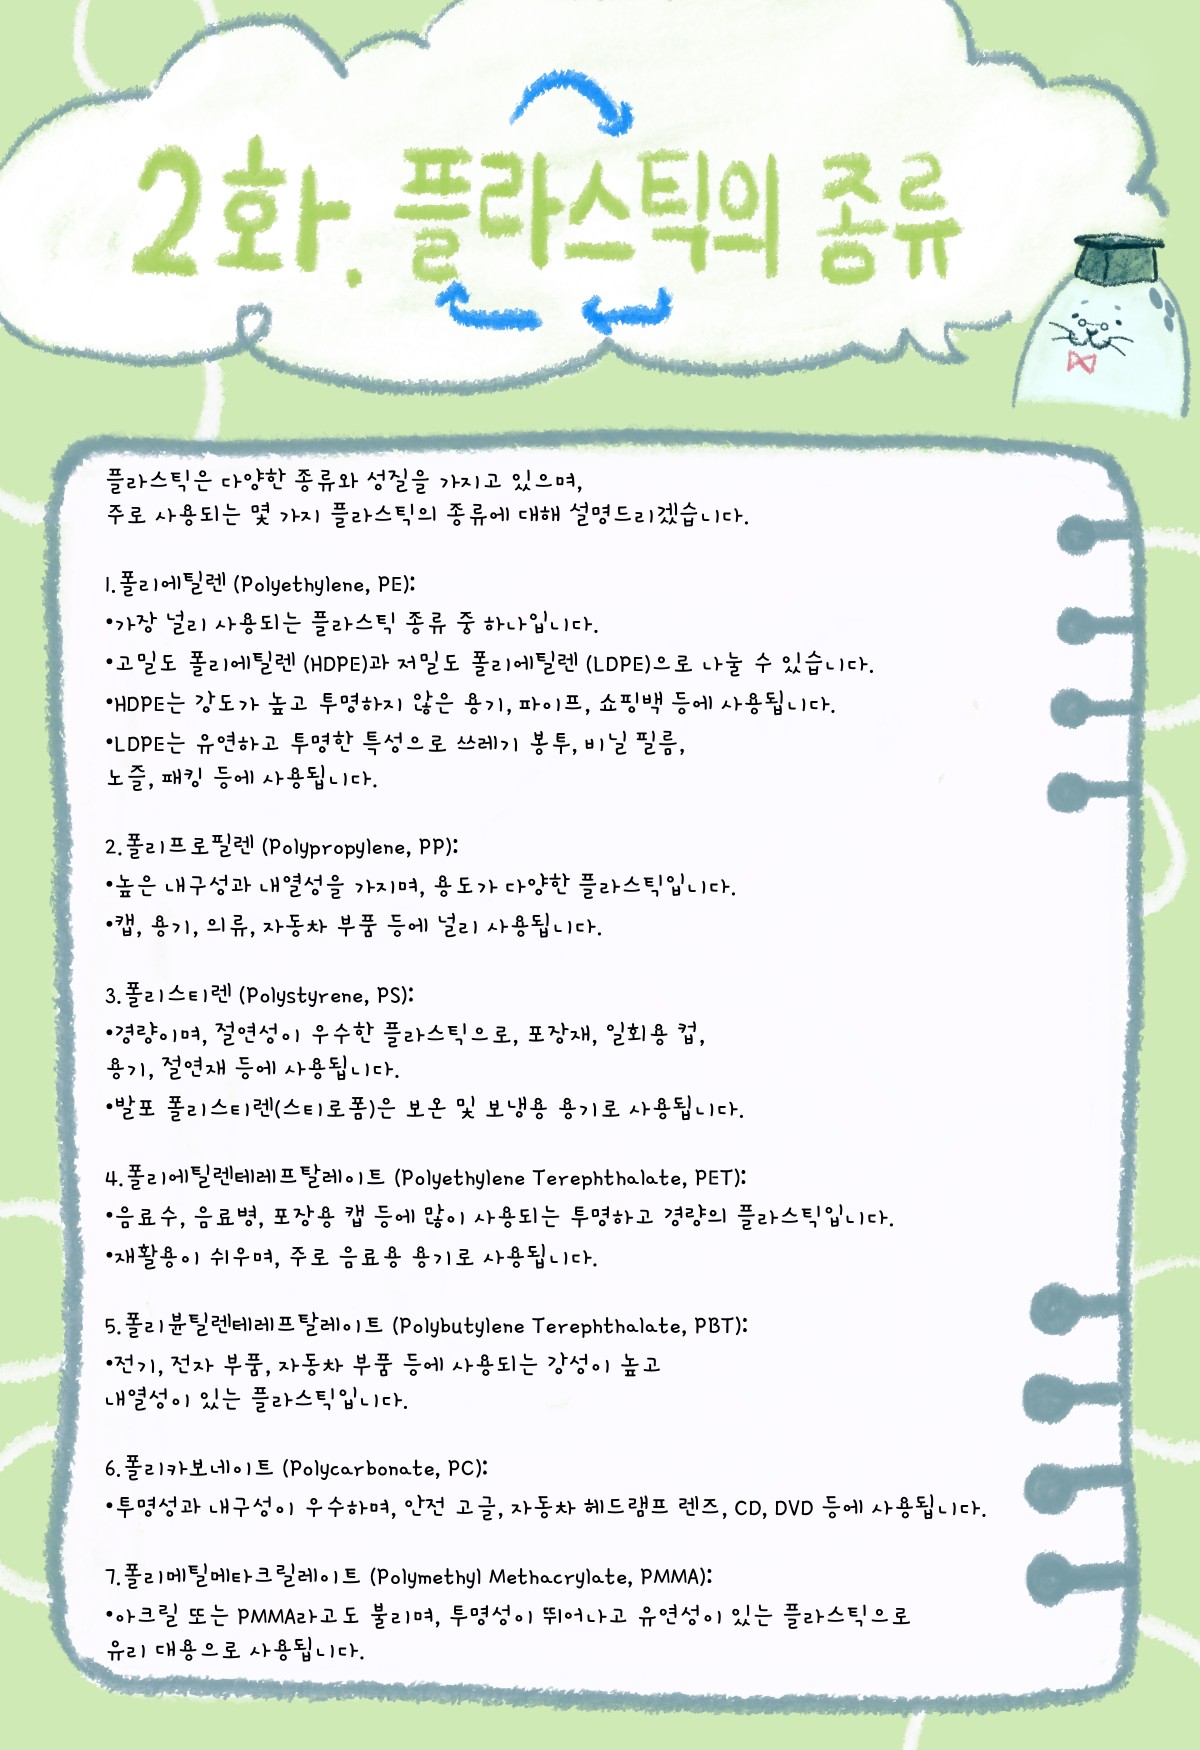 2화. 플라스틱의 종류
플라스틱은 다양한 종류와 성질을 가지고 있으며,
주로 사용되는 몇 가지 플라스틱의 종류에 대해 설명드리겠습니다.
1.폴리에틸렌 (Polyethylene, PE):
•가장 널리 사용되는 플라스틱 종류 중 하나입니다.
•고밀도 폴리에틸렌 (HDPE)과 저밀도 폴리에틸렌 (LDPE)으로 나눌 수 있습니다.
•HDPE는 강도가 높고 투명하지 않은 용기, 파이프, 쇼핑백 등에 사용됩니다.
•LDPE는 유연하고 투명한 특성으로 쓰레기 봉투, 비닐 필름,
노즐, 패킹 등에 사용됩니다.
2.폴리프로필렌 (Polypropylene, PP):
•높은 내구성과 내열성을 가지며, 용도가 다양한 플라스틱입니다.
•캡, 용기, 의류, 자동차 부품 등에 널리 사용됩니다.
3.폴리스티렌 (Polystyrene, PS):
•경량이며, 절연성이 우수한 플라스틱으로, 포장재, 일회용 컵,
용기, 절연재 등에 사용됩니다.
•발포 폴리스티렌(스티로폼)은 보온 및 보냉용 용기로 사용됩니다.
4.폴리에틸렌테레프탈레이트 (Polyethylene Terephthalate, PET):
•음료수, 음료병, 포장용 캡 등에 많이 사용되는 투명하고 경량의 플라스틱입니다.
•재활용이 쉬우며, 주로 음료용 용기로 사용됩니다.
5.폴리뷴틸렌테레프탈레이트 (Polybutylene Terephthalate, PBT):
•전기, 전자 부품, 자동차 부품 등에 사용되는 강성이 높고
내열성이 있는 플라스틱입니다.
6.폴리카보네이트 (Polycarbonate, PC):
•투명성과 내구성이 우수하며, 안전 고글, 자동차 헤드램프 렌즈, CD, DVD 등에 사용됩니다.
7.폴리메틸메타크릴레이트 (Polymethyl Methacrylate, PMMA):
•아크릴 또는 PMMA라고도 불리며, 투명성이 뛰어나고 유연성이 있는 플라스틱으로
유리 대용으로 사용됩니다.